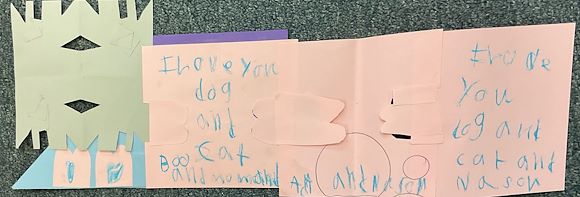 I Love you
dog
and
cat
Boo
and mom and
and Nason
I love
you
dog and
cat and
Nason